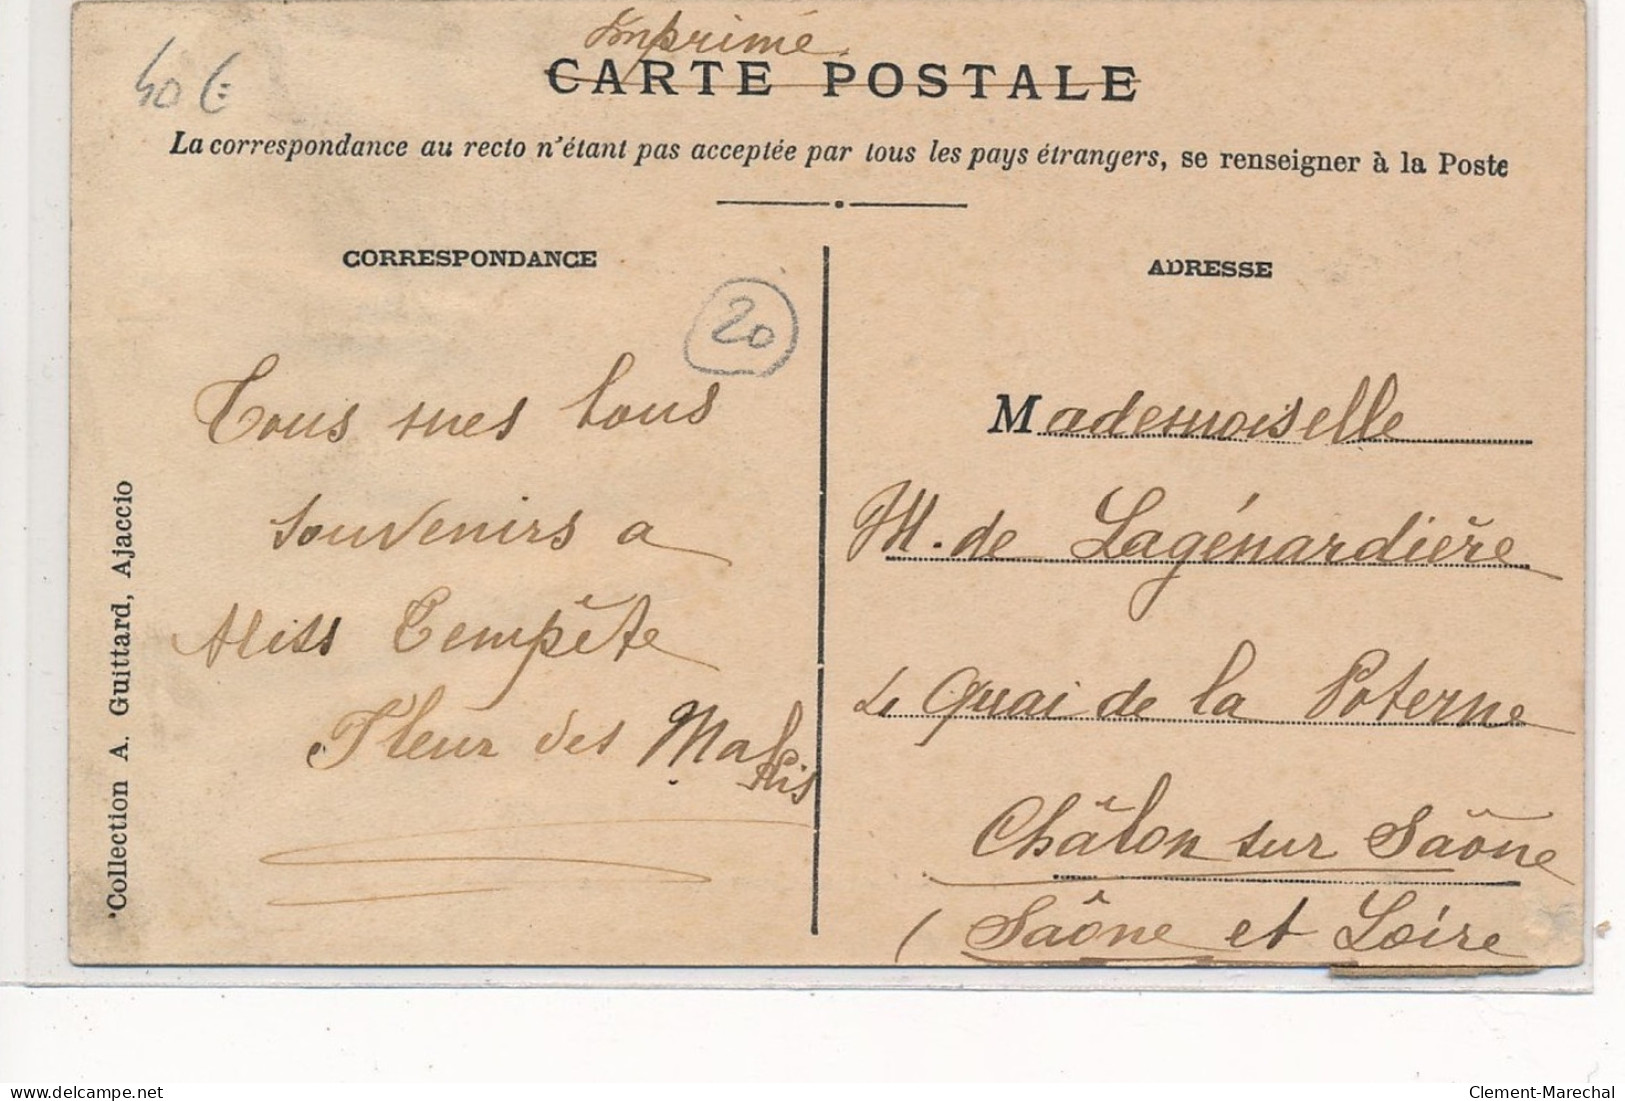 Imprimé
40 €
CARTE POSTALE
La correspondance au recto n'étant pas acceptée par tous les pays étrangers, se renseigner à la Poste
CORRESPONDANCE
20
Tous mes bons
souvenirs a
Miss Tempête
Fleur des
'Collection A. Guittard, Ajaccio
ADRESSE
Mademoiselle
M. de Lagénardière
Quai de la Poterne
Châlon sur Saône
(Saône et Loire
delcampe.net
Clement-Marechal